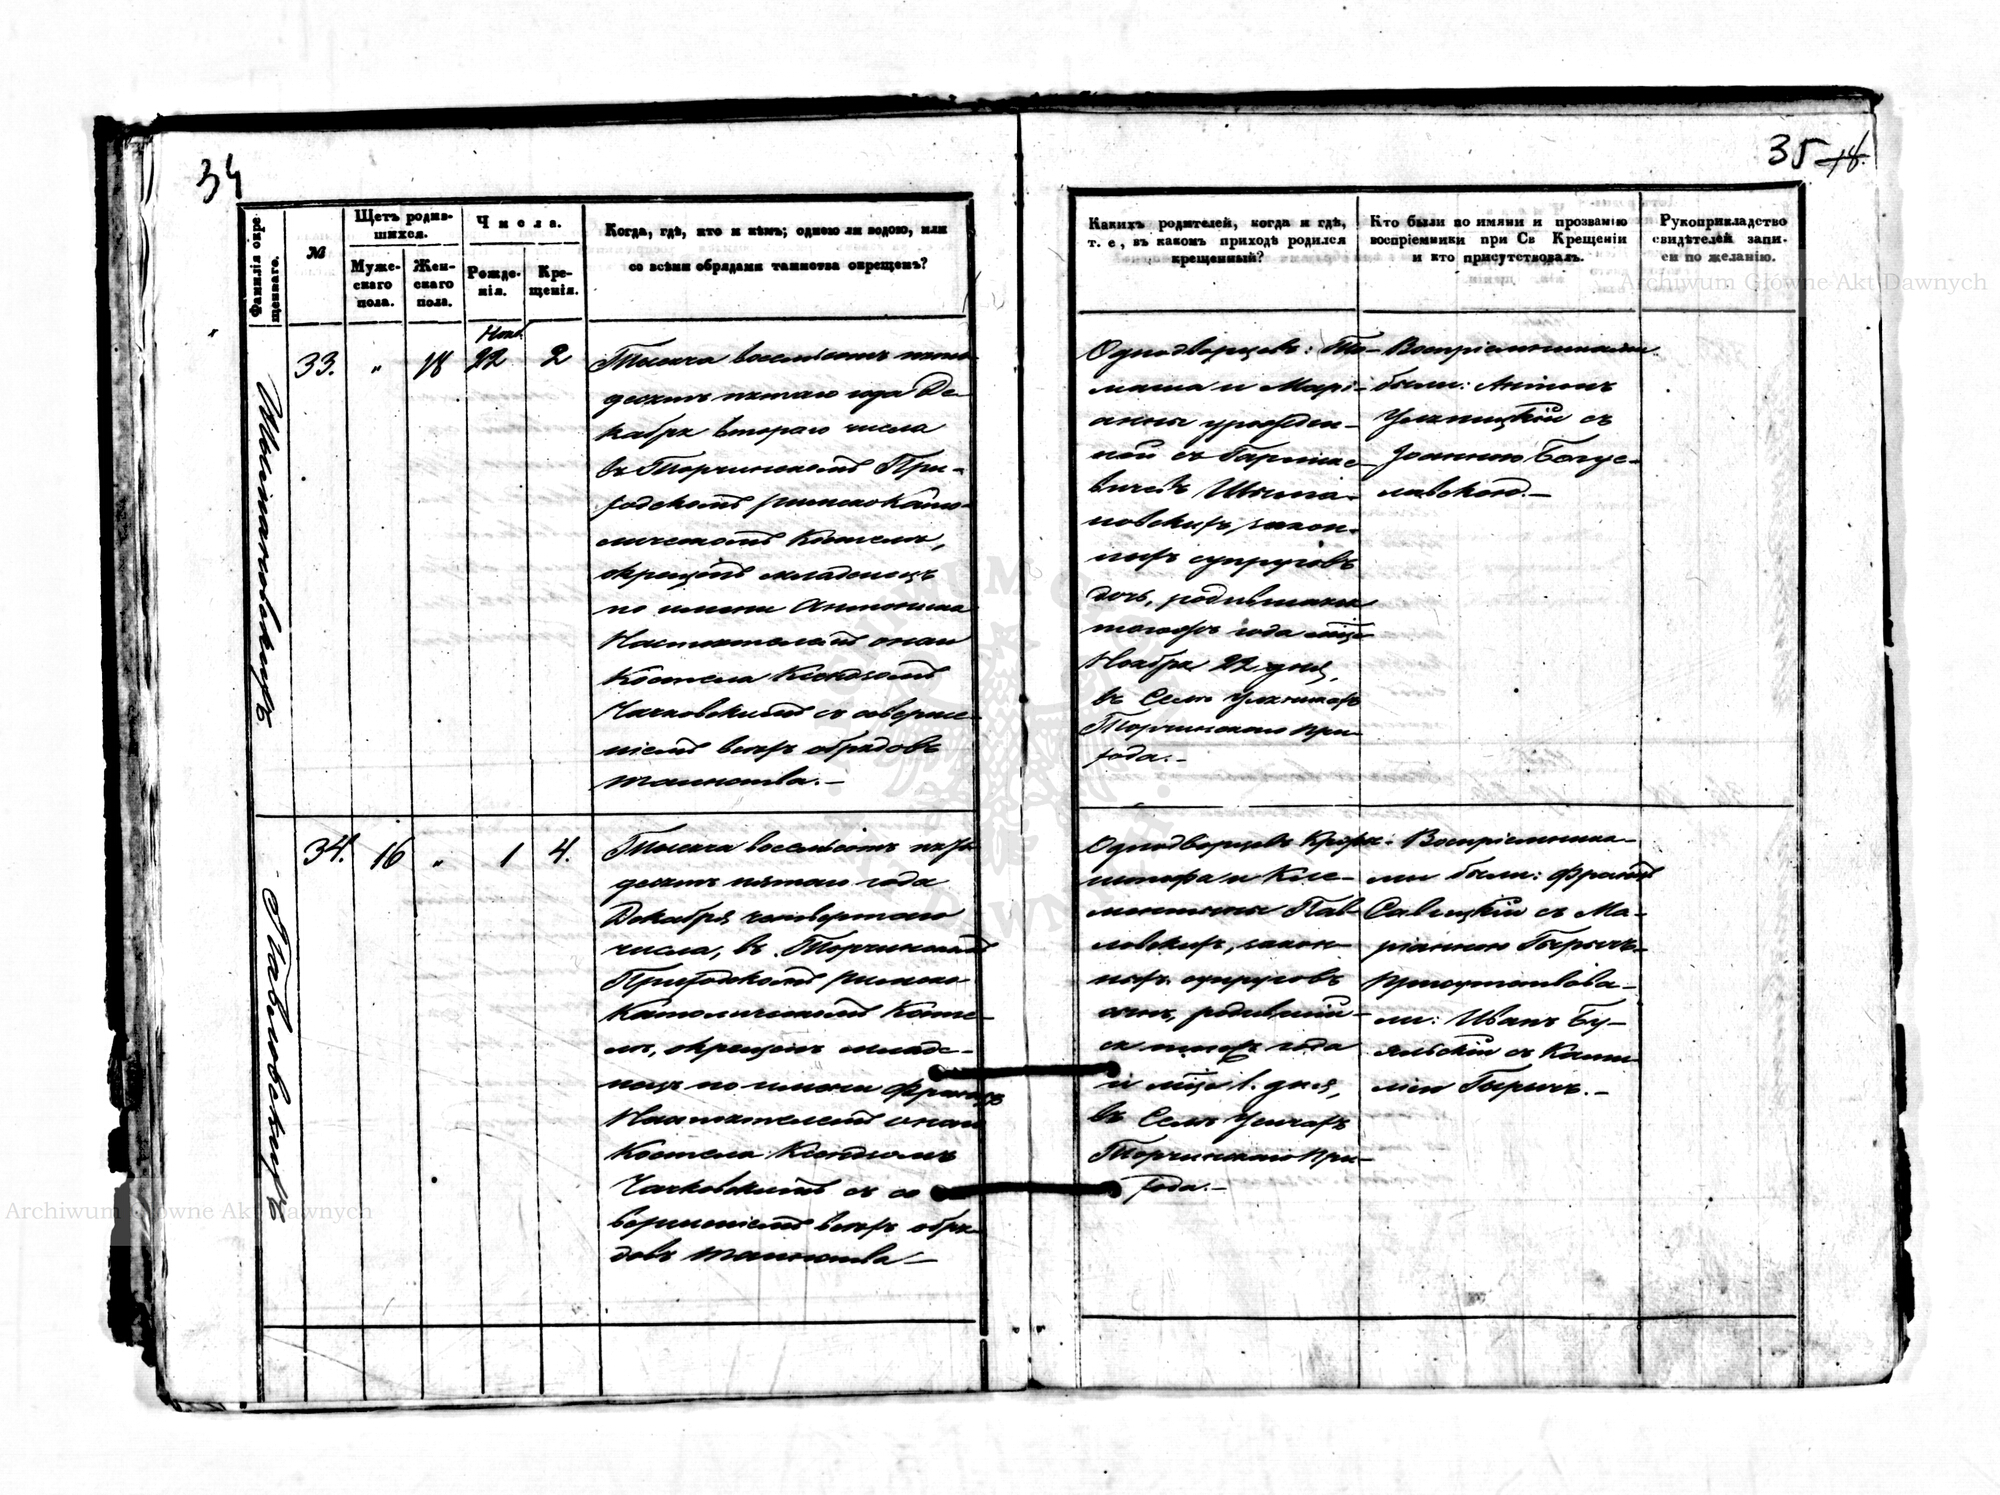 34
Фамилія окре
щеннаго.
№
Щетъ родив-
шихся.
Муже-
скаго
пола.
Жен-
скаго
пола.
Числа.
Рожде-
нія.
Кре-
щенія.
Когда, гдѣ, кто и кѣмъ; одною ли водою, или
со всѣми обрядами таинства окрещенъ?
33.
"
18
Нояб.
22
2
Тысяча восемьсотъ пять
десятъ пятаго года Де-
кабря втораго числа
въ Торчинскомъ При-
ходскомъ римско Като-
лическомъ Костелѣ,
окрещенъ младенецъ
по имени Антонина
Настоятелемъ онаго
Костела Ксендзомъ
съ соверше-
ніемъ всѣхъ обрядовъ
таинства.—
34.
16
"
1
4.
Тысяча восемьсотъ пять
десятъ пятаго года
Декабря четвертаго
числа, въ Торчинскомъ
Приходскомъ римско
Католическомъ Косте-
лѣ, окрещенъ младе-
нецъ по имени Францъ
Настоятелемъ онаго
Костела Ксендзомъ
съ со
вершеніемъ всѣхъ обря
довъ таинства—
Павловскихъ
35 18.
Какихъ родителей, когда и гдѣ,
т. е., въ какомъ приходѣ родился
крещенный?
Кто были по имяни и прозванію
воспріемники при Св Крещеніи
и кто присутствовалъ.
Рукоприкладство
свидѣтелей запи-
си по желанію.
Однодворцевъ: То-
маша и Марі-
анны урожден-
ной съ
законныхъ супруговъ
дочь, родившаяся
тогожъ года мѣсц
Ноября 22 дня,
въ Селѣ
Торчинскаго при-
хода.—
Воспріемниками
были: Антонъ
Уляницкій съ
Іоанною Богус-
лавскою.—
Однодворцевъ Крыш-
штофа и Кле-
ментины Пав-
ловскихъ, закон-
ныхъ супруговъ
сынъ, родившій-
ся тогожъ года
и мѣсц 1. дня,
въ Селѣ
Торчинскаго при-
хода.—
Воспріемника-
ми были: Францъ
Савицкій съ Ма-
ріанною
присутствова-
ли: Иванъ Бу-
яльскій съ
Archiwum Główne Akt Dawnych
Archiwum Główne Akt Dawnych